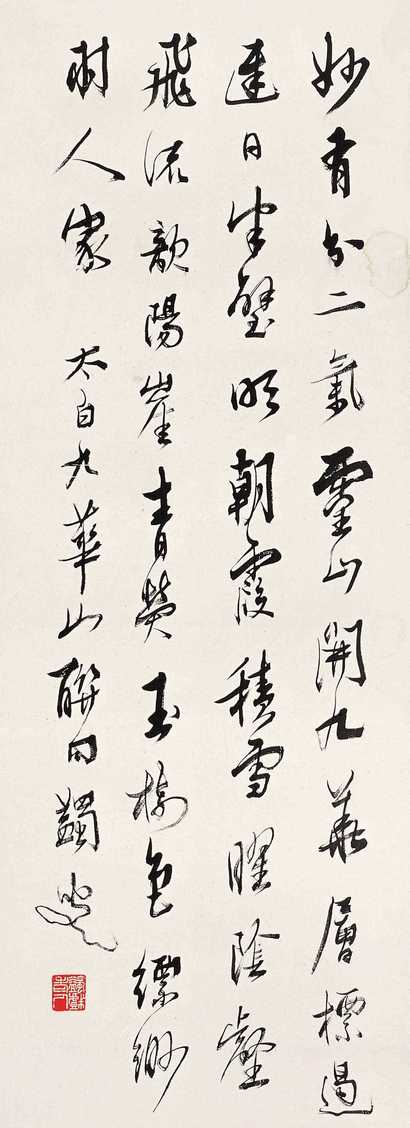 妙有分二氣靈山開九華層標遏
遲日半壁明朝霞積雪曜陰壑
飛流歕陽崖青熒玉樹色縹緲
羽人家 太白九華山聯句蠲叟